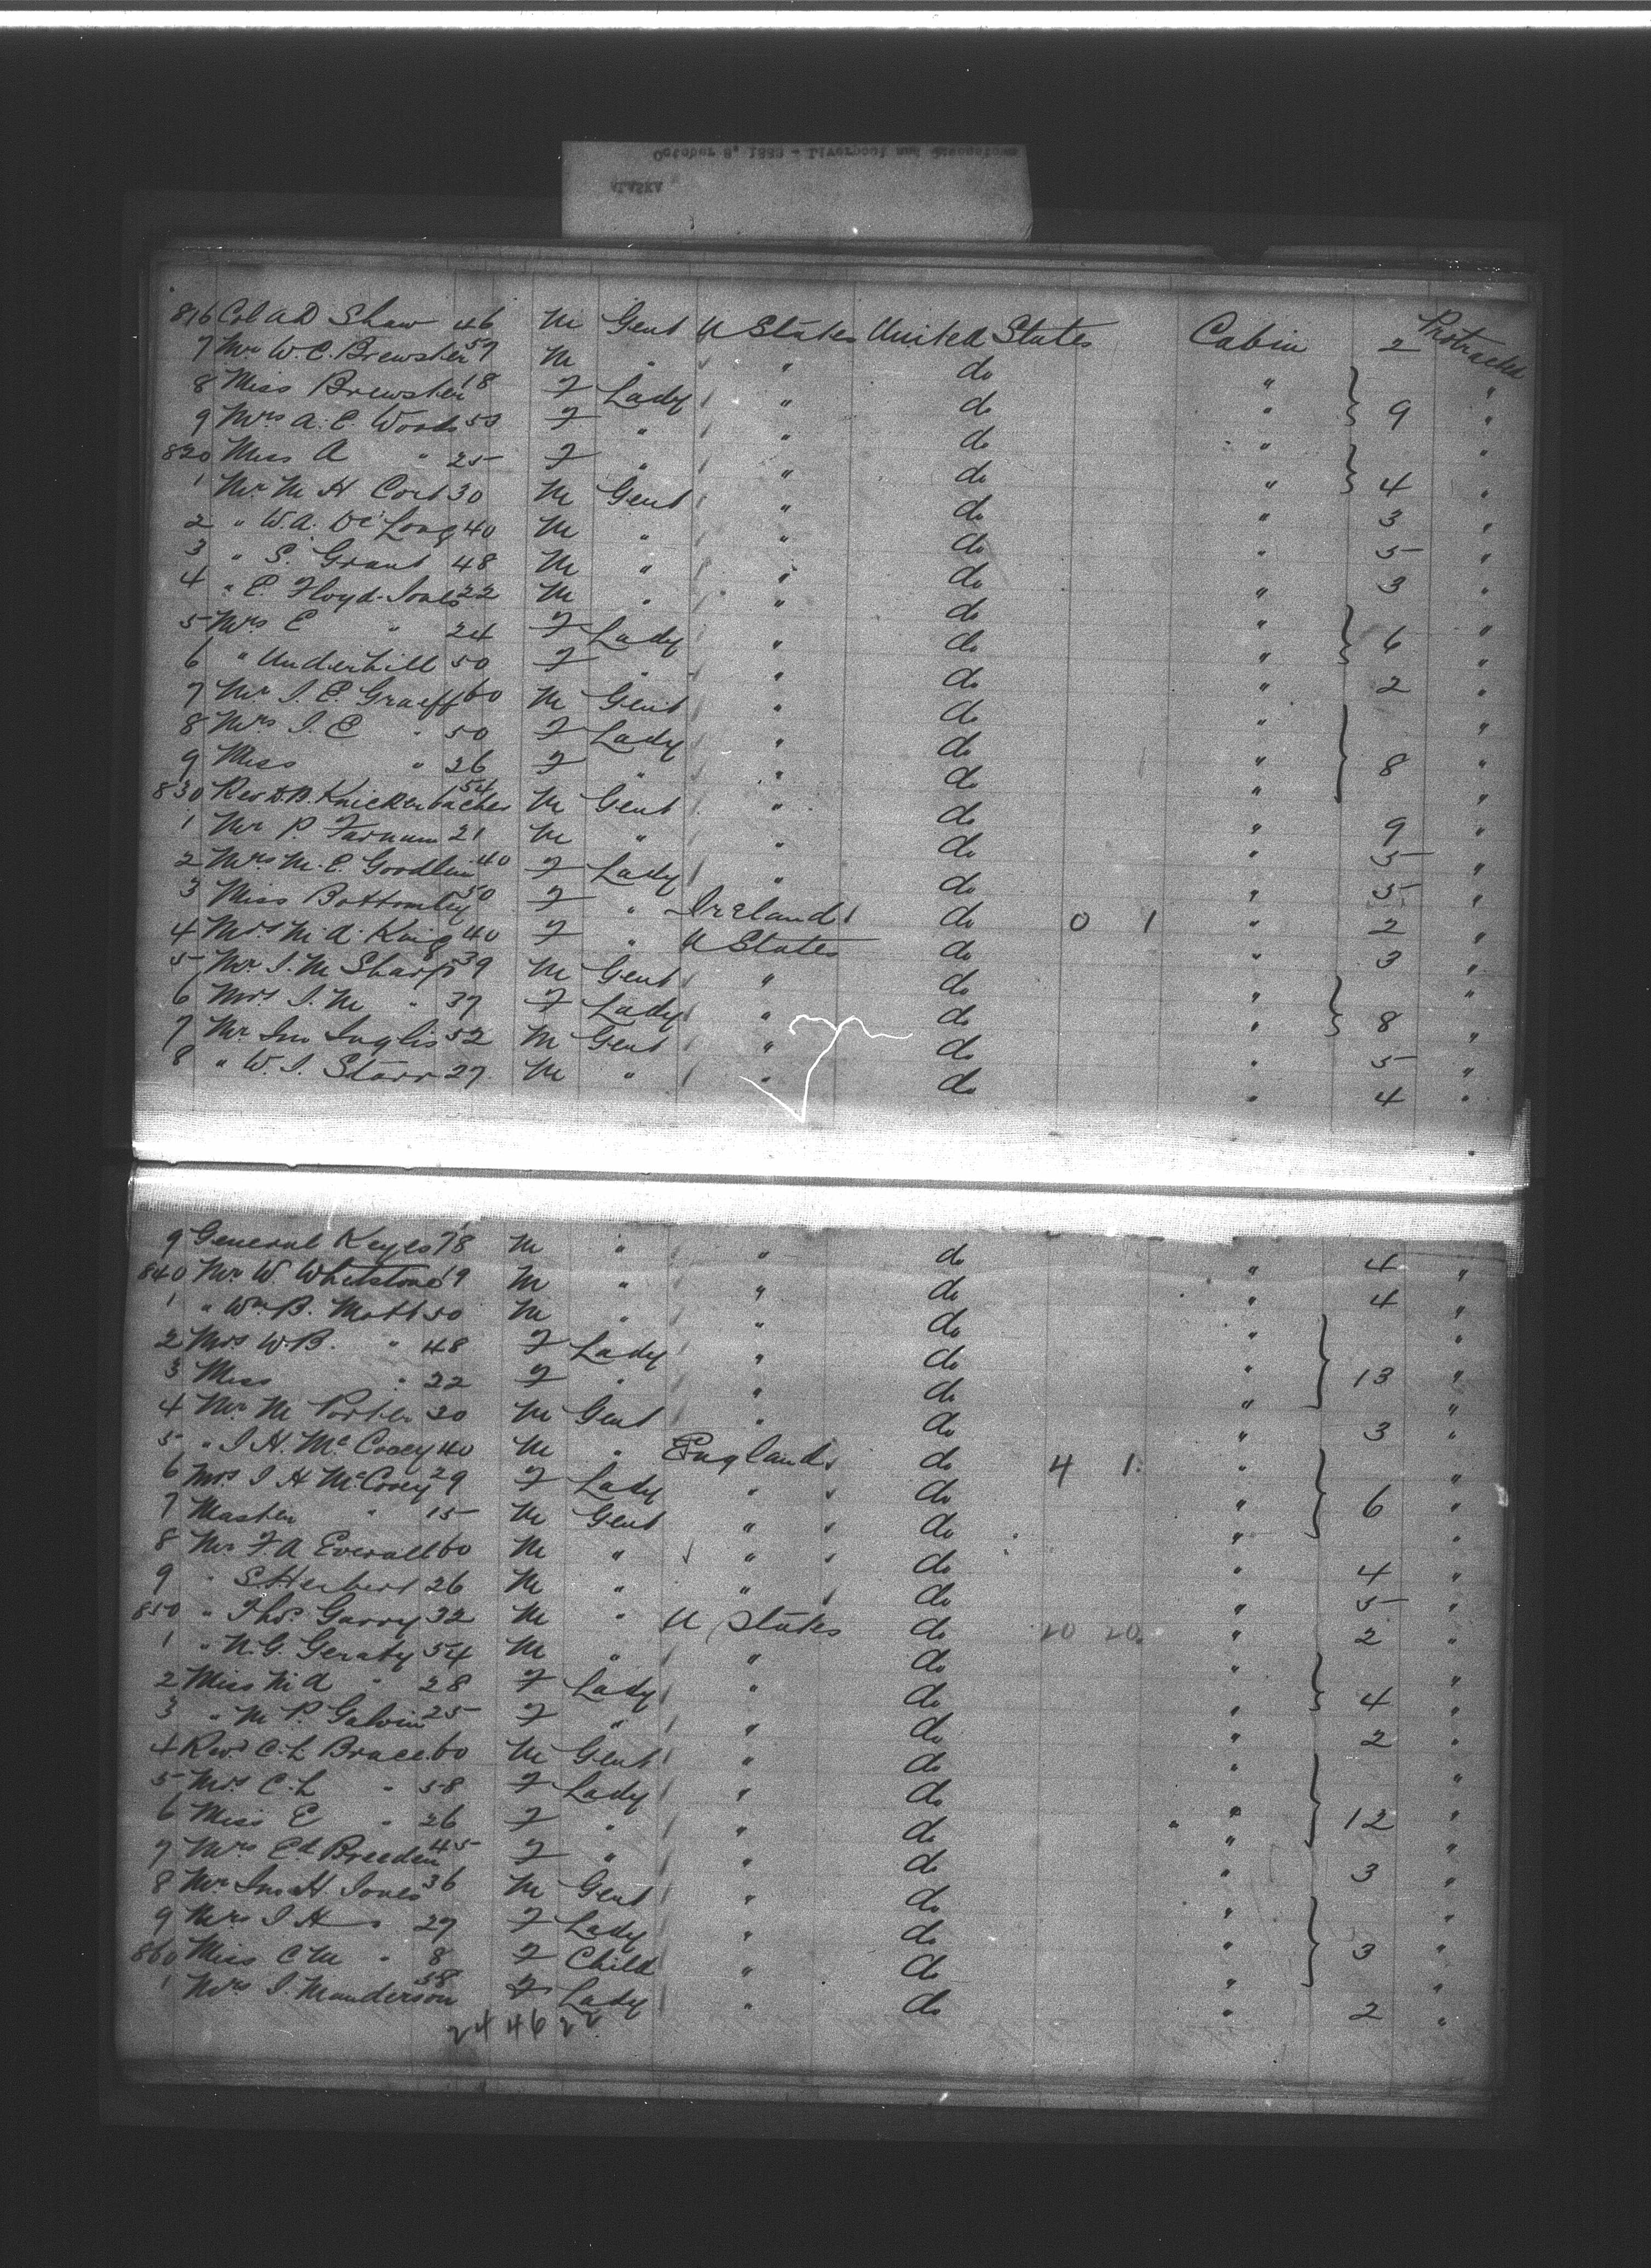 October 8, 1883 - Liverpool and Queenstown
ALASKA
816 Col A D Shaw 46 M Gent U States United States Cabin 2 Protracted
7 Mr W. C. Brewster 57 M " " do "
8 Miss Brewster 18 F Lady " do " 9 "
9 Mrs A. E. Woods 50 F " " do " "
820 Miss A " 25 F " " do " 4 "
1 Mr M H Cort 30 M Gent " do " 3 "
2 " W. A. De Long 40 M " " do " 5 "
3 " S. Grant 48 M " " do " 3 "
4 " E. Floyd-Jones 22 M " " do " "
5 Mrs E " 24 F Lady " do " 6 "
6 " Underhill 50 F " " do " 2 "
7 Mr I. E. Graeff 60 M Gent " do " "
8 Mrs I. E " 50 F Lady " do " 8 "
9 Miss " 26 F " " do " "
830 Rev D. B. Knickerbacker 54 M Gent " do " 9 "
1 Mr P. Farnum 21 M " " do " 5 "
2 Mrs M. E. 40 F Lady " do " 5 "
3 Miss Bottomley 50 F " Ireland do 0 1 " 2 "
4 Mrs M. A. King 40 F " U States do " 3 "
5 Mr I. M Sharp 39 M Gent " do " "
6 Mrs I. M " 37 F Lady " do " 8 "
7 Mr Jno Inglis 52 M Gent " do " 5 "
8 " W. I. Starr 27 M " " do " 4 "
9 General Keyes 78 M " " do " 4 "
840 Mr W. Whetstone 19 M " " do " 4 "
1 " Wm B. Mott 50 M " " do " "
2 Mrs W. B. " 48 F Lady " do " 13 "
3 Miss " 22 F " " do " "
4 Mr M Porter 30 M Gent " do " 3 "
5 " I H. McCooey 40 M " England do 4 1 " "
6 Mrs I H McCooey 29 F Lady " do " 6 "
7 Master " 15 M Gent " do " "
8 Mr F A Everall 60 M " " do " 4 "
9 " S Herbert 26 M " " do " 5 "
850 " Thos. Garry 32 M " U States do 20 20 " 2 "
1 " N. G. Geraty 54 M " " do " "
2 Miss M A " 28 F Lady " do " 4 "
3 " M P. Galvin 25 F " " do " 2 "
4 Revd C. L Brace 60 M Gent " do " "
5 Mrs C. L " 58 F Lady " do " 12 "
6 Miss E " 26 F " " do " "
7 Mrs Ed Breeden 45 F " " do " 3 "
8 Mr Jno H Jones 36 M Gent " do " "
9 Mrs I H " 27 F Lady " do " 3 "
860 Miss C M " 8 F Child " do " "
1 Mrs I. Manderson 38 F Lady " do " 2 "
24 46 22